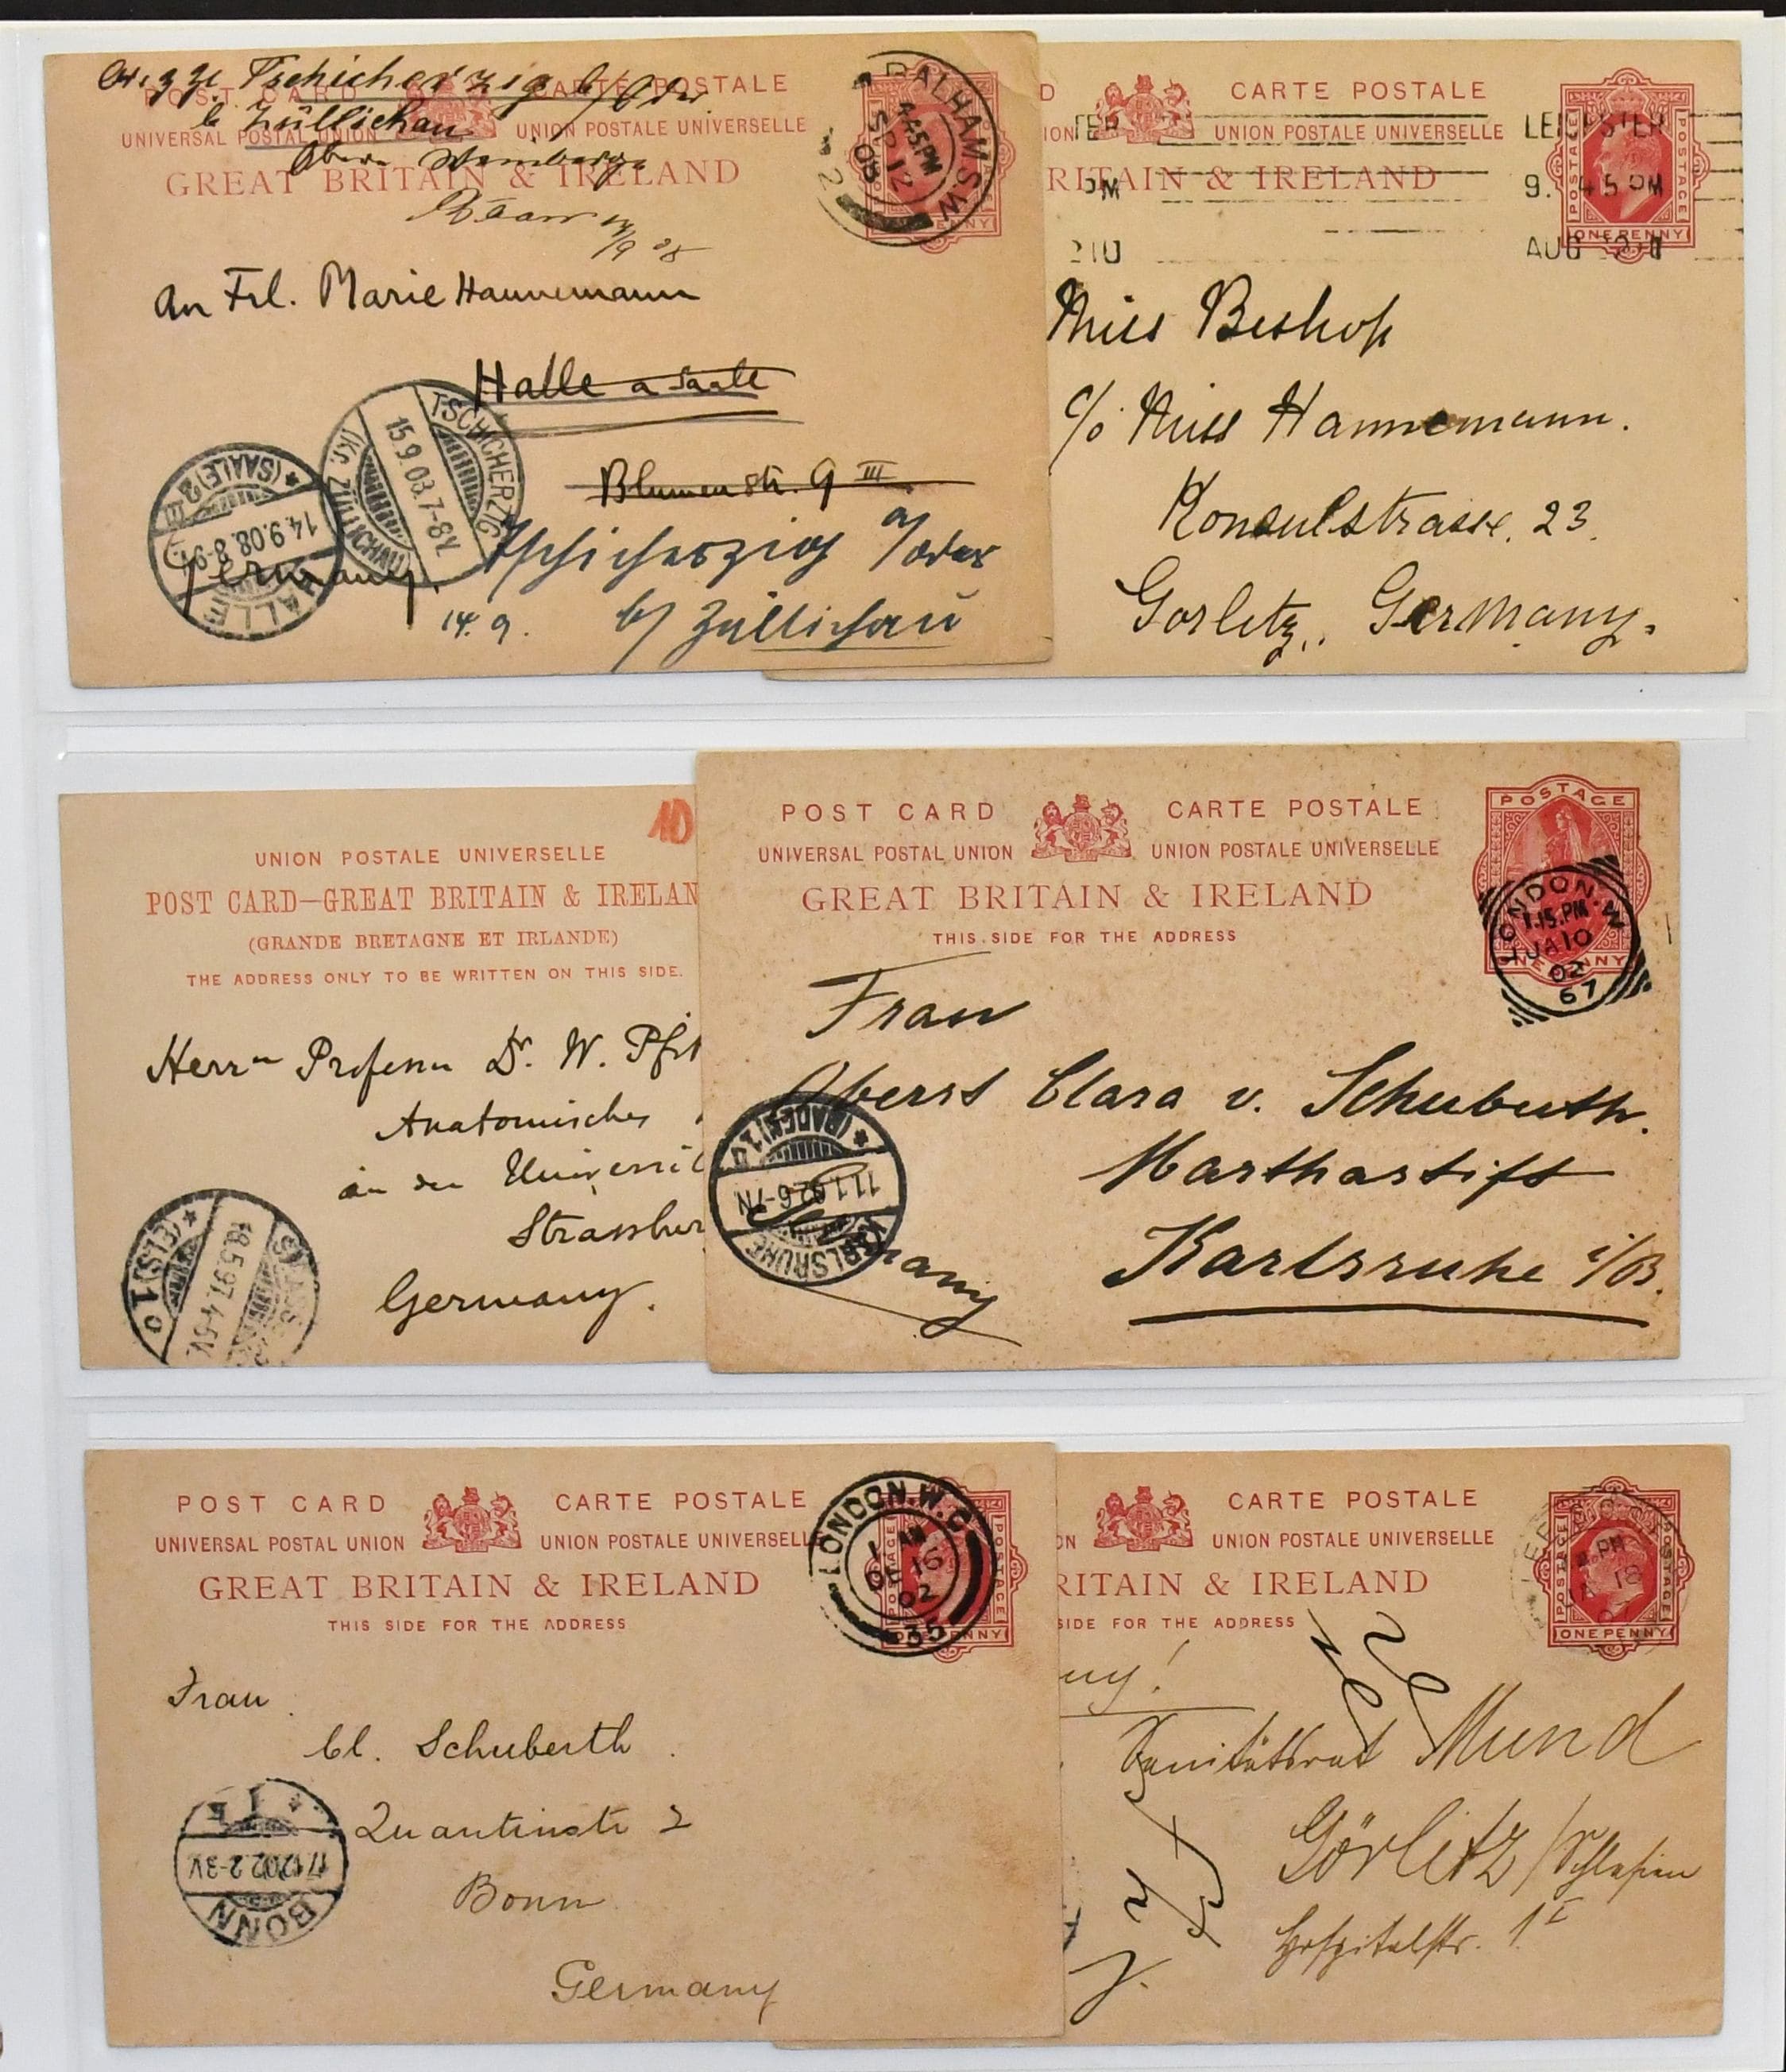 Tschicherzig b/Oder
POST CARD CARTE POSTALE
b Züllichau
UNIVERSAL POSTAL UNION UNION POSTALE UNIVERSELLE
GREAT BRITAIN & IRELAND
BALHAM.S.W
4.45PM
SP 12
08
2
An Frl. Marie Hannemann
Halle a Saale
Blumenstr. 9 III
Tschicherzig a/Oder
14.9. b/ Züllichau
Germany.
TSCHICHERZIG
15.9.03.7-8V.
(Kr. ZÜLLICHAU)
HALLE
14.9.08.8-9V.
(SAALE) 2
D CARTE POSTALE
ION UNION POSTALE UNIVERSELLE
RITAIN & IRELAND
TER LEICESTER
PM 9.45PM
210 AUG
POSTAGE POSTAGE
ONE PENNY
Miss Bishop
c/o Miss Hannemann.
Konsulstrasse. 23.
Gorlitz, Germany.
10
UNION POSTALE UNIVERSELLE
POST CARD—GREAT BRITAIN & IRELAN
(GRANDE BRETAGNE ET IRLANDE)
THE ADDRESS ONLY TO BE WRITTEN ON THIS SIDE.
Herrn Professor Dr. W. Pfit
Anatomisches
an der Universit
Strassbur
Germany.
STRASS
18.5.97.4-5V.
(ELS) 1 o
POST CARD CARTE POSTALE
UNIVERSAL POSTAL UNION UNION POSTALE UNIVERSELLE
GREAT BRITAIN & IRELAND
THIS SIDE FOR THE ADDRESS
POSTAGE
ONE PENNY
LONDON.W
1.15.PM
JA 10
02
67
Frau
Oberst Clara v. Schuberth.
Marthastift
Karlsruhe i/B.
Germany
KARLSRUHE
11.1.02.6-7N
(BADEN) 1
POST CARD CARTE POSTALE
UNIVERSAL POSTAL UNION UNION POSTALE UNIVERSELL
GREAT BRITAIN & IRELAND
THIS SIDE FOR THE ADDRESS
LONDON.W.C
1 AM
DE 16
02
35
Frau
Cl. Schuberth
Quantiusstr 2
Bonn
Germany
BONN
17.12.02.2-3V
1
CARTE POSTALE
ON UNION POSTALE UNIVERSELLE
RITAIN & IRELAND
SIDE FOR THE ADDRESS
POSTAGE POSTAGE
ONE PENNY
PM
JA 18
ny!
Sanitätsrat Mund
Görlitz/Schlesien
Hospitalstr. 1 I